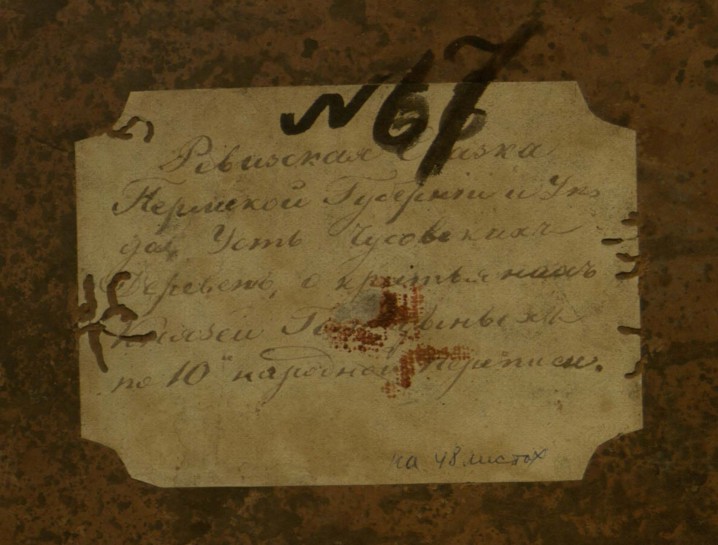 № 67
Ревизская Сказка
Пермской Губернiи и Уѣз
да, Усть Чусовскихъ
Деревень, о крестьянахъ
Князей Голицыныхъ
по 10й народной переписи.
на 48 листах